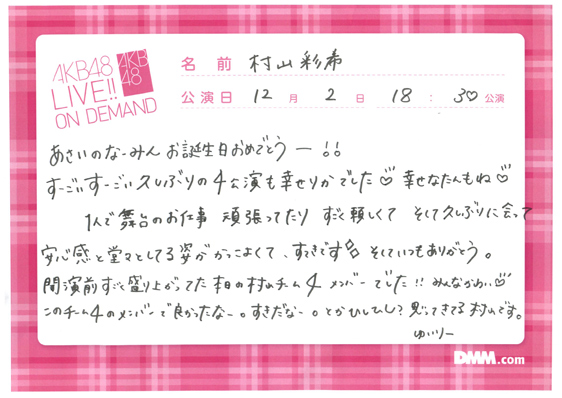 AKB48
LIVE!!
ON DEMAND
AKB
48
名 前 村山彩希
公演日 12 月 2 日 18 : 30 公演
あさいのなーみん お誕生日おめでとうー!!
すーごいすーごい久しぶりの4公演も幸せりかでした♡ 幸せなたんもね♡
1人で舞台のお仕事 頑張ってたり すごく頼しくて そして久しぶりに会って
安心感と堂々としてる姿がかっこよくて、すてきです そしていつもありがとう。
開演前すごく盛り上がってた本日の村山チーム4 メンバーでした!! みんなかわいい♡
このチーム4のメンバーで良かったなー。すきだなー。とかひしひし? 思ってきてる村山です。
ゆいりー
DMM.com